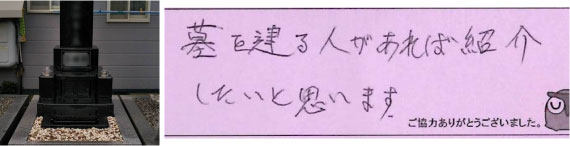 墓を建る人があれば紹介
したいと思います
ご協力ありがとうございました。